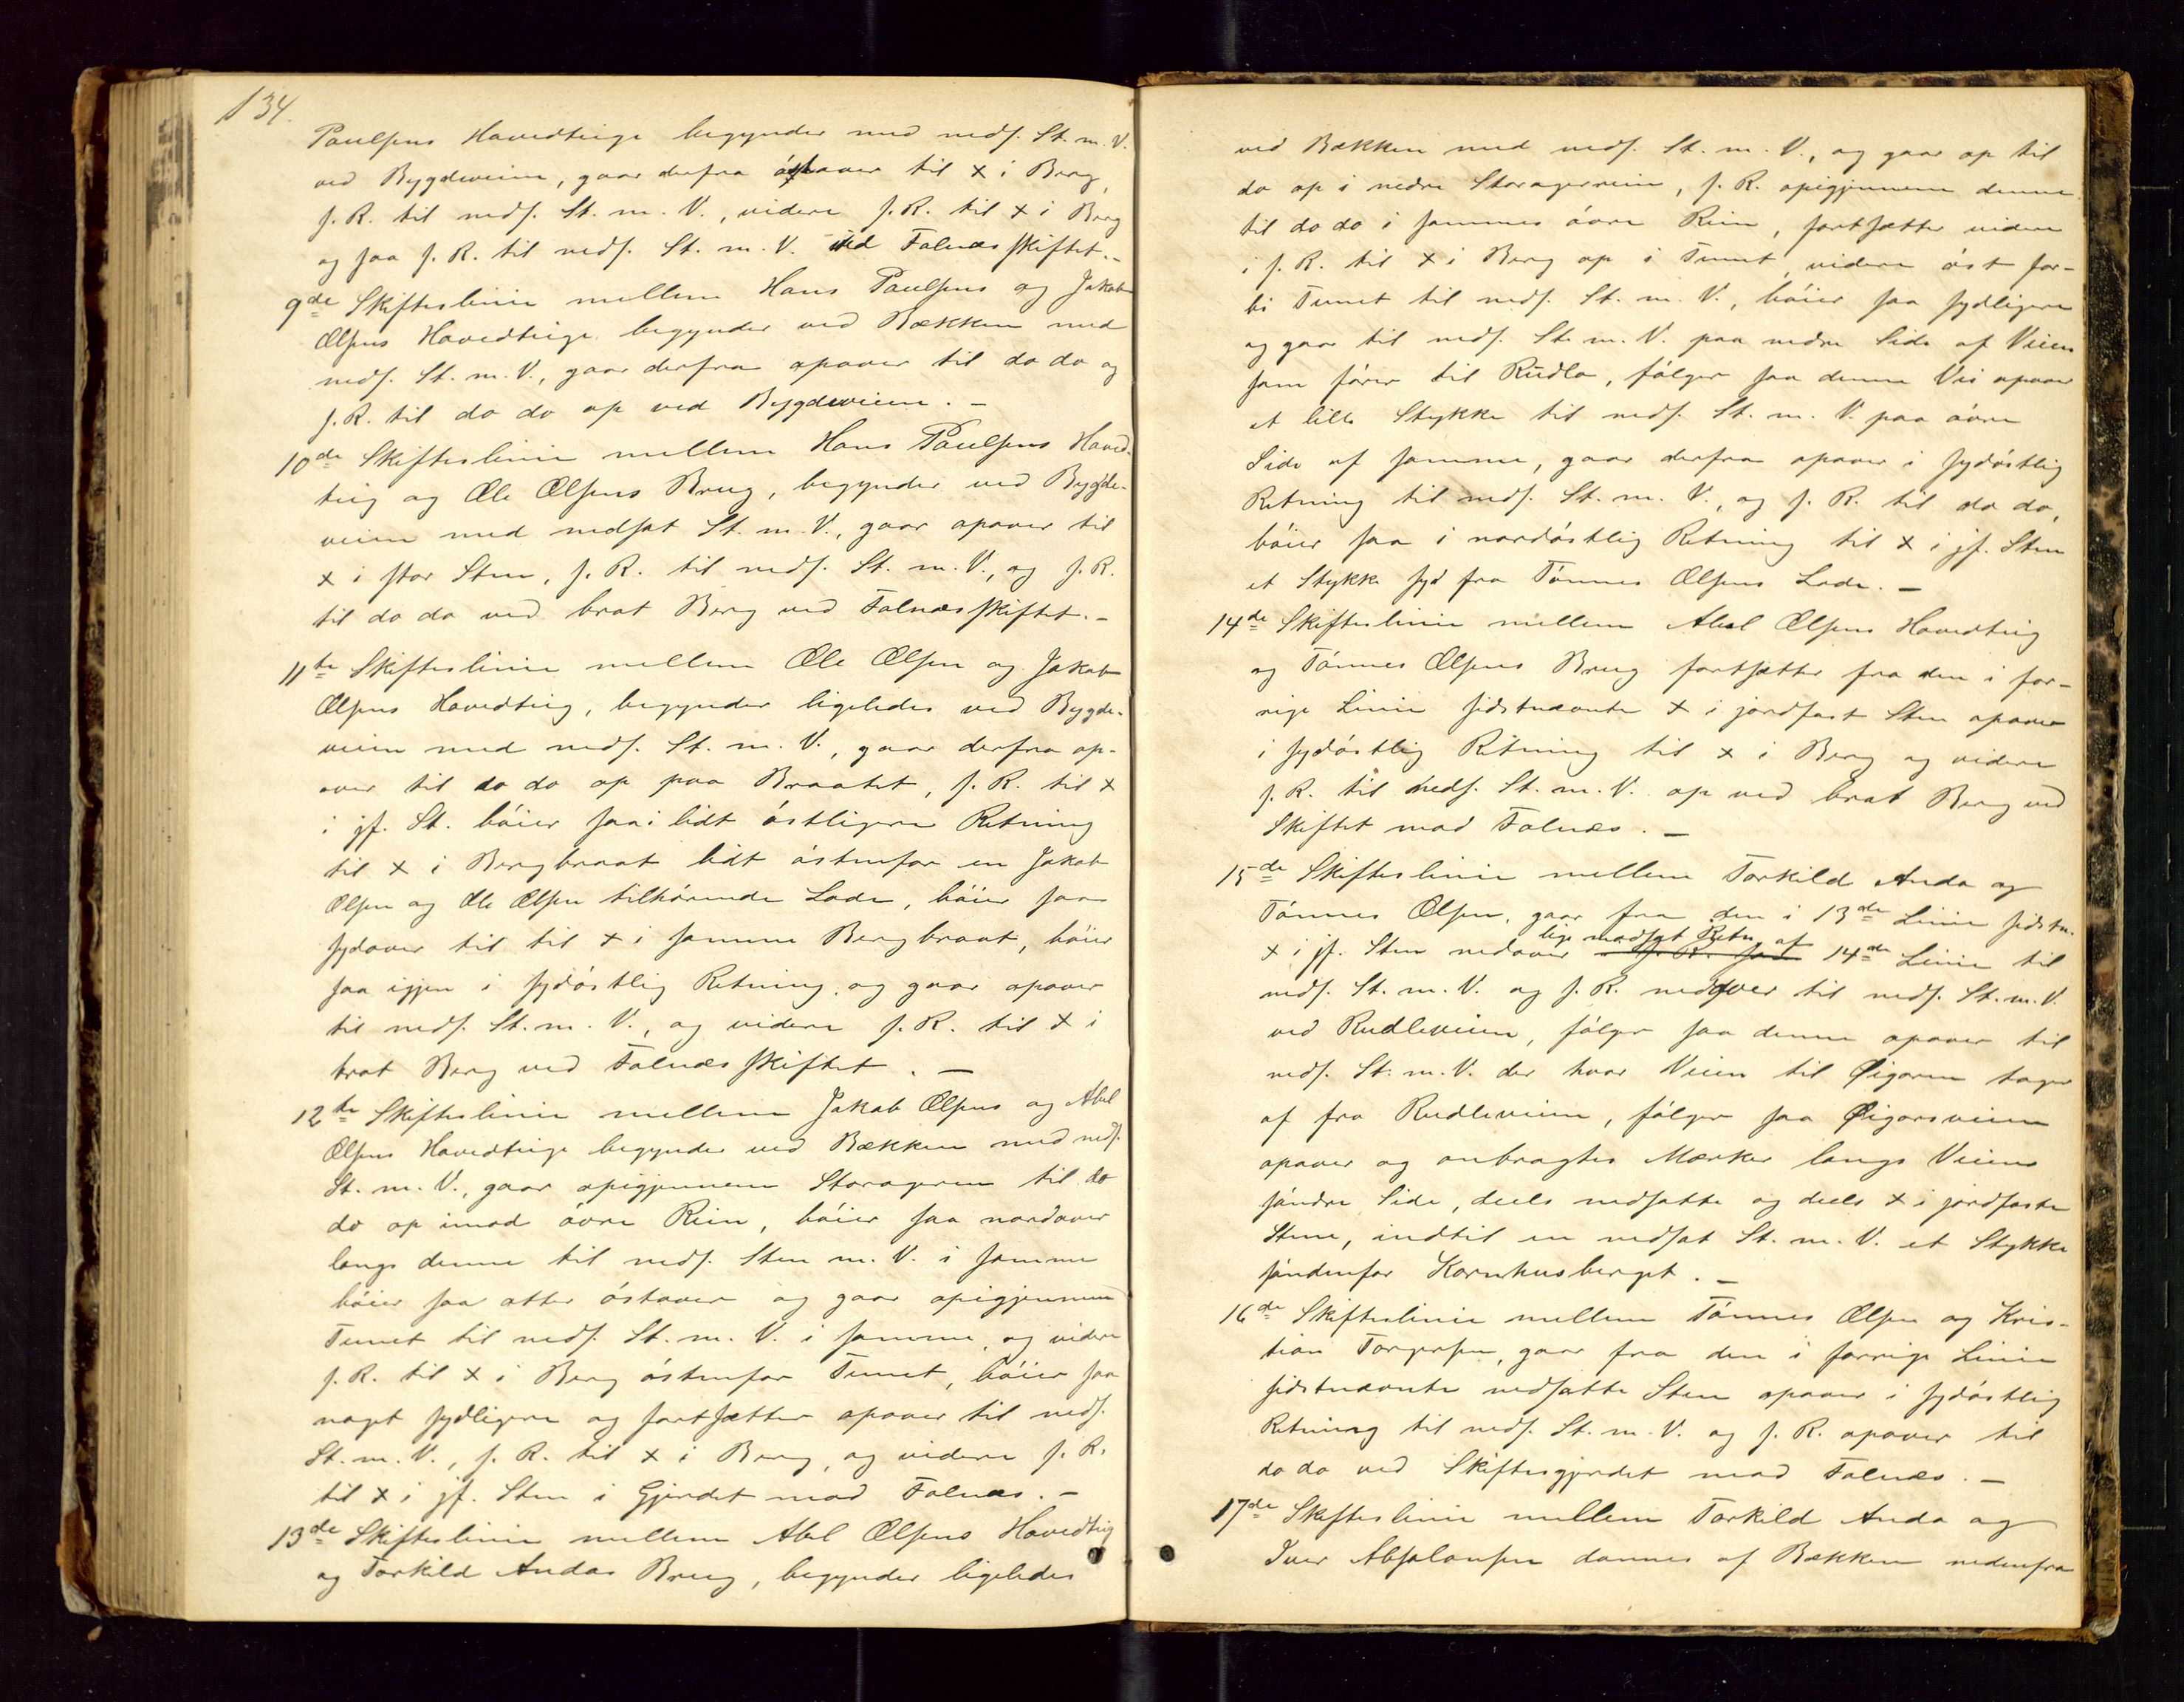 134.
Paulsens Hovedteige begynder med neds. St. m. V.
ved Bygdeveien, gaar derfra østover til x i Berg,
s. R. til neds. St. m. V., videre s. R. til x i Berg
og saa s. R. til neds. St. m. V. ved Falnæsskiftet. –
9de Skifteslinie mellem Hans Paulsens og Jakob
Olsens Hovedteige begynder ved Bækken med
neds. St. m. V., gaar derfra opover til do do og
s. R. til do do op ved Bygdeveien. –
10de Skifteslinie mellem Hans Paulsens Hoved-
teig og Ole Olsens Brug, begynder ved Bygde-
veien med nedsat St. m. V., gaar opover til
x i stor Sten, s. R. til neds. St. m. V., og s. R.
til do do ved brat Berg ved Falnæsskiftet. –
11te Skifteslinie mellem Ole Olsen og Jakob
Olsens Hovedteig, begynder ligeledes ved Bygde-
veien med neds. St. m. V., gaar derfra op-
over til do do op paa Braatet, s. R. til x
i jf. St. bøier saa i lidt østligere Retning
til x i Bergbraat lidt østenfor en Jakob
Olsen og Ole Olsen tilhørende Lade, bøier saa
sydover til til x i samme Bergbraat, bøier
saa igjen i sydøstlig Retning og gaar opover
til neds. St. m. V., og videre s. R. til x i
brat Berg ved Falnæsskiftet. –
12te Skifteslinie mellem Jakob Olsens og Abel
Olsens Hovedteige begynder ved Bækken med neds.
St. m. V., gaar opigjennem Storageren til do
do op imod øvre Rein, bøier saa nordover
langs denne til neds. Sten m. V. i samme
bøier saa atter østover og gaar opigjennem
Tunet til neds. St. m. V. i samme, og videre
s. R. til x i Berg østenfor Tunet, bøier saa
noget sydligere og fortsætter opover til neds.
St. m. V., s. R. til x i Berg, og videre s. R.
til x i jf. Sten i Gjerdet mod Falnæs. –
13de Skifteslinie mellem Abel Olsens Hovedteig
og Torkild Andas Brug, begynder ligeledes
ved Bækken med neds. St. m. V., og gaar op til
do op i nedre Storagerrein, s. R. opigjennem denne
til do do i sammes øvre Rein, fortsætter videre
i s. R. til x i Berg op i Tunet, videre øst for-
bi Tunet til neds. St. m. V., bøier saa sydligere
og gaar til neds. St. m. V. paa nedre Side af Veien
som fører til Rudla, følger saa denne Vei opover
et lille Stykke til neds. St. m. V. paa øvre
Side af samme, gaar derfra opover i sydøstlig
Retning til neds. St. m. V., og s. R. til do do,
bøier saa i nordøstlig Retning til x i jf. Sten
et Stykke syd fra Tønnes Olsens Lade. –
14de Skifteslinie mellem Abel Olsens Hovedteig
og Tønnes Olsens Brug fortsætter fra den i for-
rige Linie sidstnævnte x i jordfast Sten opover
i sydøstlig Retning til x i Berg og videre
s. R. til neds. St. m. V. op ved brat Berg ved
Skiftet mod Falnæs. –
15de Skifteslinie mellem Torkild Anda og
Tønnes Olsen, gaar fra den i 13de Linie sidstn.
lige modsat Retn. af
x i jf. Sten nedover 14de Linie til
neds. St. m. V. og s. R. nedover til neds. St. m. V.
ved Rudleveien, følger saa denne opover til
neds. St. m. V. der hvor Veien til Øigaren tager
af fra Rudleveien, følger saa Øigarsveien
opover og anbragtes Mærker langs Veiens
søndre Side, deels nedsatte og deels x i jordfaste
Stene, indtil en nedsat St. m. V. et Stykke
søndenfor Kornhusberget. –
16de Skifteslinie mellem Tønnes Olsen og Kris-
tian Torgersen, gaar fra den i forrige Linie
sidstnævnte nedsatte Sten opover i sydøstlig
Retning til neds. St. m. V. og s. R. opover til
do do ved Skiftesgjerdet mod Falnæs. –
17de Skifteslinie mellem Torkild Anda og
Iver Absalonsen dannes af Bækken nedenfra